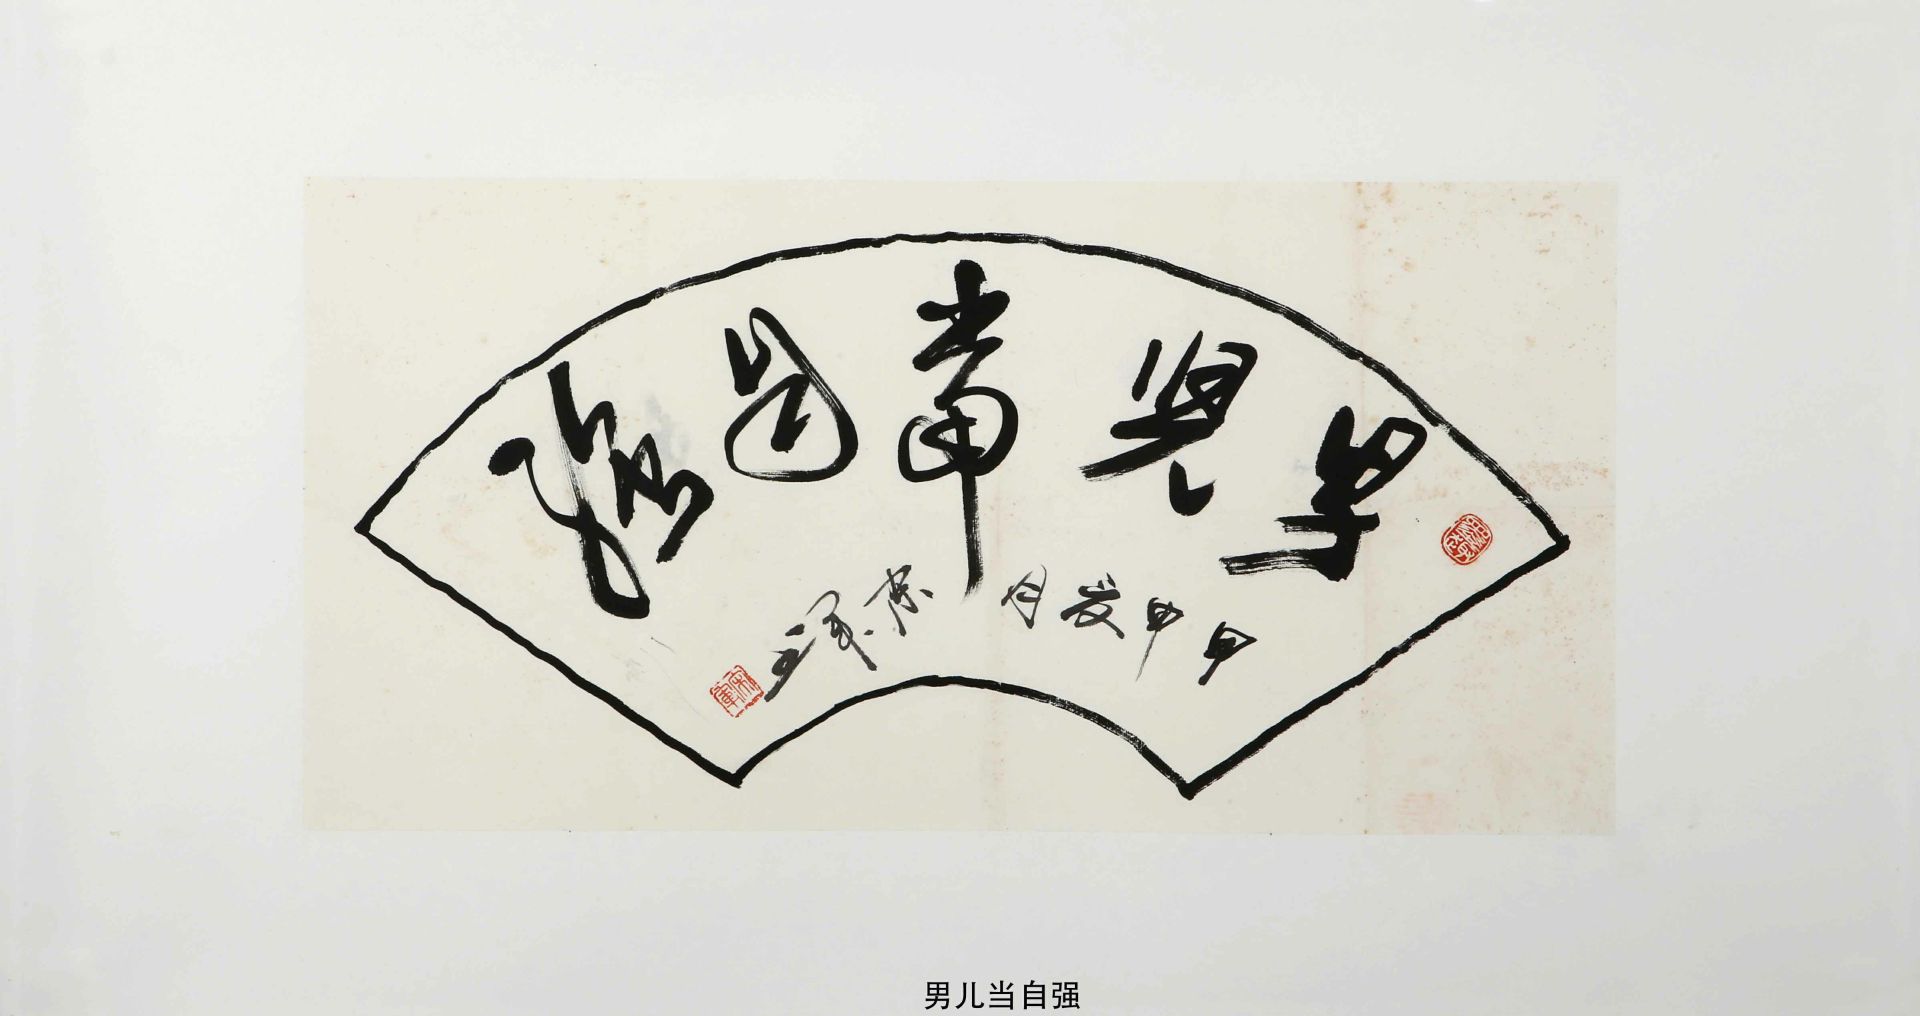 男兒當自強
甲申
男儿当自强